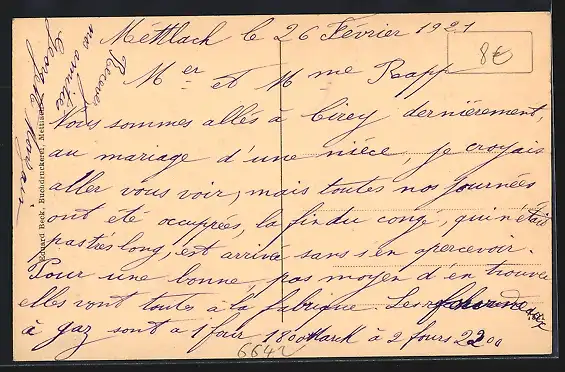 Mettlach le 26 Février 1921
8€
Mer et Mme Rapp
Nous sommes allés à Cirey dernièrement,
au mariage d'une nièce, je croyais
aller vous voir, mais toutes nos journées
ont été occuprées, la fin du congé, qui n'était
pas très long, est arrivé sans s'en apercevoir.
Pour une bonne, pas moyen d'en trouver
elles vont toutes à la fabrique. Les
à gaz sont a 1 four 1800 Marck à 2 fours 2200
6642
Recevez
nos amitiés
Georges
Eduard Beck, Buchdruckerei, Mettlach